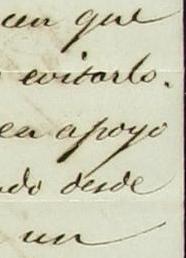 cen que
evitarlo.
en apoyo
ndo desde
un